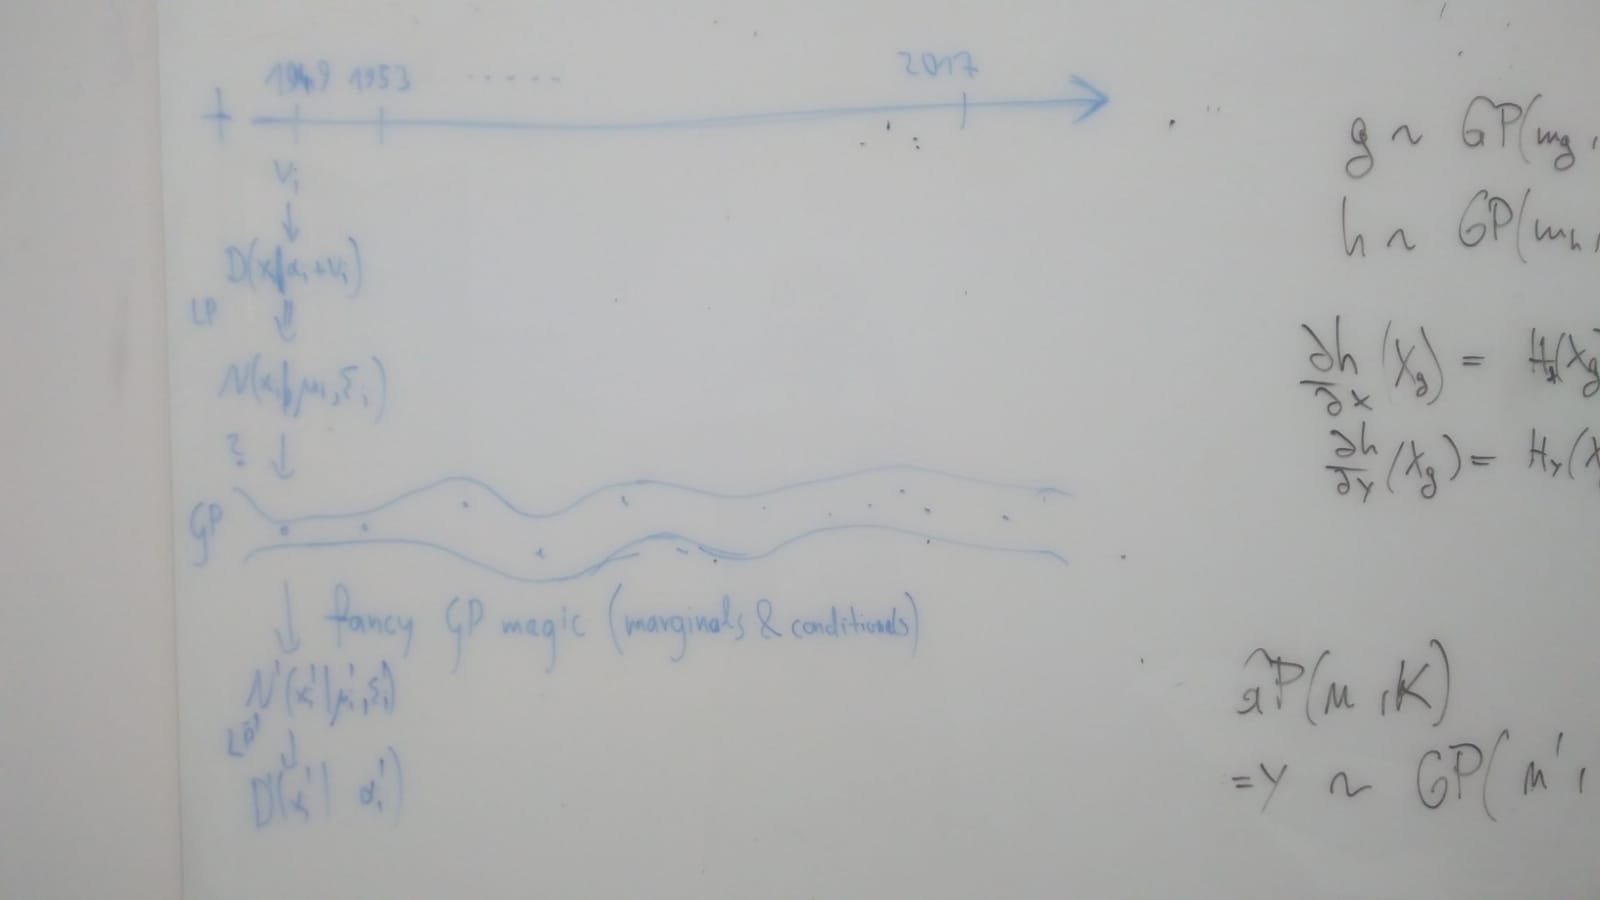 t 1949 1953 ..... 2017
vᵢ
↓
D(xᵢ|αᵢ+vᵢ)
LP ⇓
N(xᵢ|μᵢ,Σᵢ)
? ↓
GP
↓ fancy GP magic (marginals & conditionals)
N'(xᵢ'|μᵢ',Σᵢ')
↓
D(xᵢ'| αᵢ')
g ~ GP(mg,
h ~ GP(mh,
∂h/∂x (Xg) =
∂h/∂y (Xg) = Hy(X
GP(m,K)
=Y ~ GP(m',